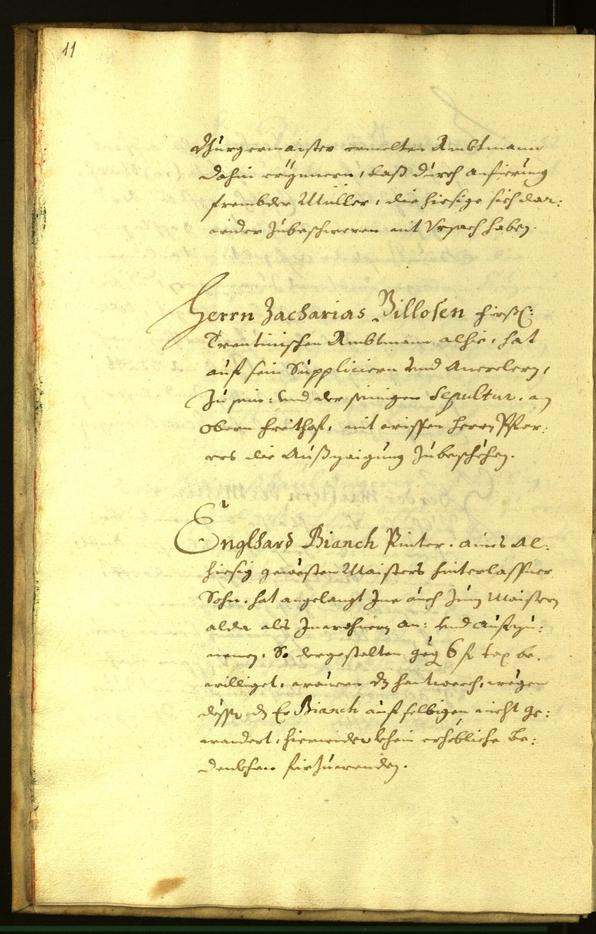 11
Burgermaister ermelten Ambtmann
dahin erjnnern, daß durch anfierung
frembder Müller, die hiesige sich dar:
wider Zubeschweren mit Vrsach haben.
Herrn Zacharias Billosen fürstl:
Trentinischen Ambtmann alhie, hat
auf sein Suppliciern vnd
Zu sein: vnd der seinigen Sepultur. an
obern freithof, mit wissen herrn Pfar:
rers die Außzaigung Zubeschehen.
Englhard Bianch Pinter. aines Al:
hiesig gewesten Maisters hinterlassner
Sohn. hat angelangt Jne auch Zum Maistern
alda als Jnwohnern an: vnd aufzu:
nemen, So dergestalten geg 6 f tax be:
williget, wouern dz hantwerch, wegen
diser, dz Er Bianch auf selbigen nicht ge:
wandert, hierwider khein erhebliche be:
denkhen fürzuwenden.